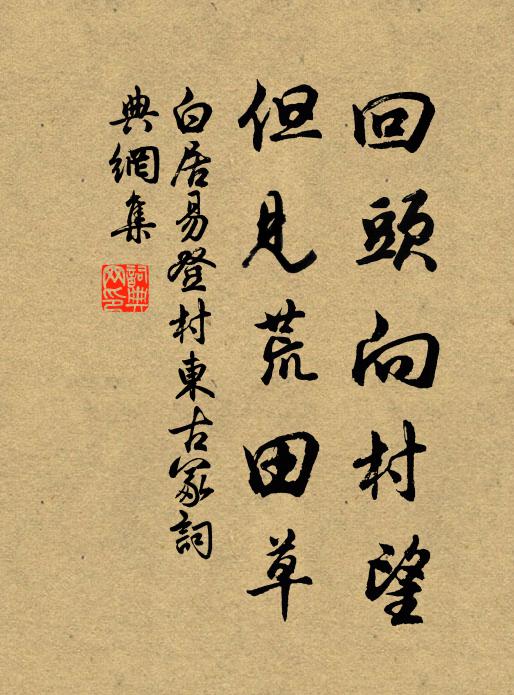 回頭向村望
但見荒田草
白居易登村東古冢詞
典網集
詞典網印